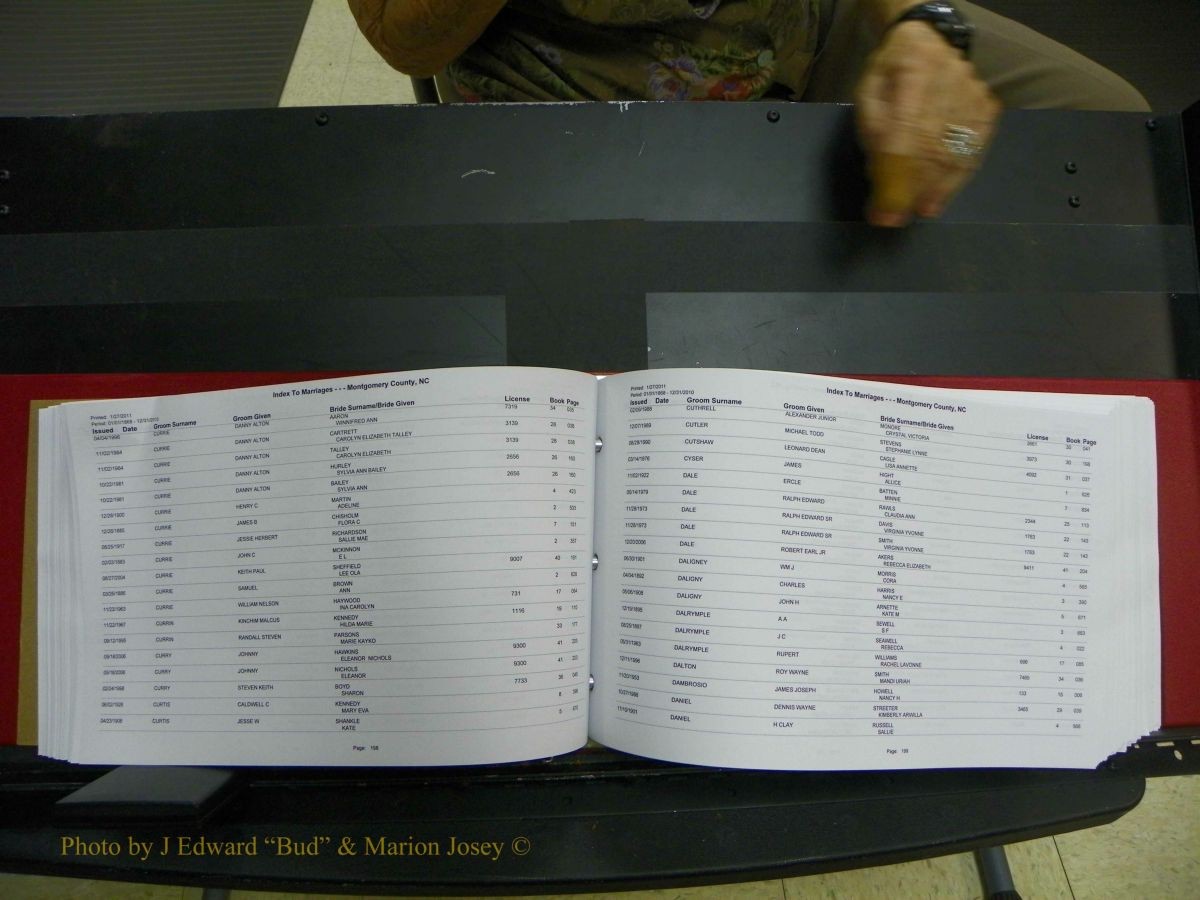 Index To Marriages - - - Montgomery County, NC
Printed: 1/27/2011
Period: 01/01/1868 - 12/31/2010
Issued Date Groom Surname Groom Given Bride Surname/Bride Given License Book Page
04/04/1996 CURRIE DANNY ALTON AARON 7319 34 035
WINNIFRED ANN
11/02/1984 CURRIE DANNY ALTON CARTRETT 3139 28 038
CAROLYN ELIZABETH TALLEY
11/02/1984 CURRIE DANNY ALTON TALLEY 3139 28 038
CAROLYN ELIZABETH
10/22/1981 CURRIE DANNY ALTON HURLEY 2656 26 160
SYLVIA ANN BAILEY
10/22/1981 CURRIE DANNY ALTON BAILEY 2656 26 160
SYLVIA ANN
12/26/1900 CURRIE HENRY C MARTIN 4 423
ADELINE
CURRIE JAMES B CHISHOLM 2 533
FLORA C
CURRIE JESSIE HERBERT RICHARDSON 7 101
SALLIE MAE
02/02/1883 CURRIE JOHN C MCKINNON 2 357
E L
08/27/2004 CURRIE KEITH PAUL SHEFFIELD 9007 40 191
LEE OLA
CURRIE SAMUEL BROWN 2 628
ANN
11/22/1963 CURRIE WILLIAM NELSON HAYWOOD 731 17 064
INA CAROLYN
11/22/1967 CURRIN KINCHIM MALCUS KENNEDY 1116 19 110
HILDA MARIE
CURRIN RANDALL STEVEN PARSONS 33 177
MARIE KAYKO
CURRY JOHNNY HAWKINS 9300 41
ELEANOR NICHOLS
CURRY JOHNNY NICHOLS 9300 41
ELEANOR
CURRY STEVEN KEITH BOYD 7733
SHARON
CURTIS CALDWELL C KENNEDY 8
MARY EVA
04/23/1908 CURTIS JESSE W SHANKLE 5
KATE
Page: 198
Index To Marriages - - - Montgomery County, NC
Printed: 1/27/2011
Period: 01/01/1868 - 12/31/2010
Issued Date Groom Surname Groom Given Bride Surname/Bride Given License Book Page
02/09/1988 CUTHRELL ALEXANDER JUNIOR MONORE 30 041
CRYSTAL VICTORIA
12/07/1989 CUTLER MICHAEL TODD STEVENS 3973 30 198
STEPHANIE LYNNE
08/28/1990 CUTSHAW LEONARD DEAN CAGLE 31 037
LISA ANNETTE
03/14/1876 CYSER JAMES HIGHT 1
ALLICE
11/02/1922 DALE ERCLE BATTEN 7 834
MINNIE
DALE RALPH EDWARD RAWLS 2344 25 113
CLAUDIA ANN
11/28/1973 DALE RALPH EDWARD SR DAVIS 1763 22 143
VIRGINIA YVONNE
11/28/1973 DALE RALPH EDWARD SR SMITH 1763 22 143
VIRGINIA YVONNE
12/20/2006 DALE ROBERT EARL JR AKERS 9411 41 204
REBECCA ELIZABETH
06/30/1901 DALIGNEY WM J MORRIS 4 565
CORA
04/04/1892 DALIGNY CHARLES HARRIS 3 390
NANCY E
DALIGNY JOHN H ARNETTE 5 671
KATE M
12/19/1895 DALRYMPLE A A SEWELL 3
S F
DALRYMPLE J C SEAWELL 4 022
REBECCA
05/31/1963 DALRYMPLE RUPERT WILLIAMS 17
RACHEL LAVONNE
12/11/1996 DALTON ROY WAYNE SMITH 34
MANDI URIAH
11/20/1953 DAMBROSIO JAMES JOSEPH HOWELL 133 15 006
NANCY H
10/27/1986 DANIEL DENNIS WAYNE STREETER 3465 29 035
KIMBERLY ARWILLA
11/10/1901 DANIEL H CLAY RUSSELL 4
SALLIE
Page: 199
Photo by J Edward “Bud” & Marion Josey ©